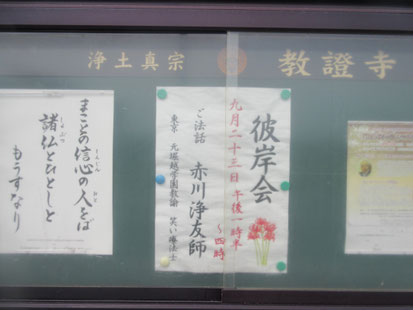 浄土真宗 教證寺
彼岸会
九月二十三日 午後一時半
～四時
ご法話 赤川浄友師
東京 元堀越学園教諭 笑い療法士
まことの信心の人をば
諸仏とひとしと
もうすなり